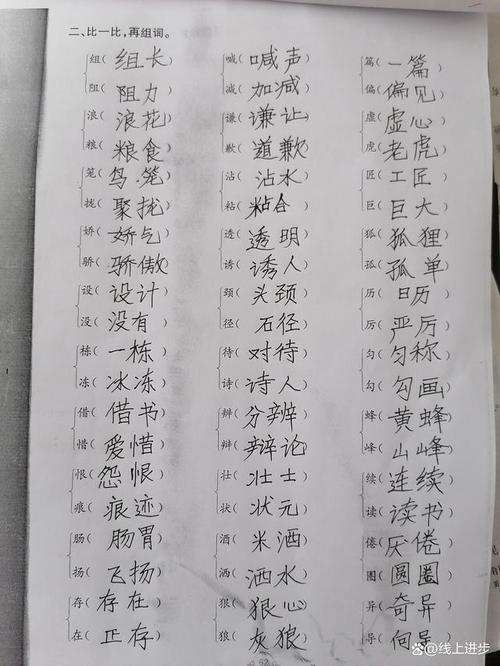 二、比一比,再组词。
组( 组长 ) 喊( 喊声 ) 篇( 一篇 )
阻( 阻力 ) 减( 加减 ) 偏( 偏见 )
浪( 浪花 ) 谦( 谦让 ) 虚( 虚心 )
粮( 粮食 ) 歉( 道歉 ) 虎( 老虎 )
笼( 鸟笼 ) 沾( 沾水 ) 匠( 工匠 )
拢( 聚拢 ) 粘( 粘合 ) 巨( 巨大 )
娇( 娇气 ) 透( 透明 ) 狐( 狐狸 )
骄( 骄傲 ) 诱( 诱人 ) 孤( 孤单 )
设( 设计 ) 颈( 头颈 ) 历( 日历 )
没( 没有 ) 径( 石径 ) 厉( 严厉 )
栋( 一栋 ) 待( 对待 ) 匀( 匀称 )
冻( 冰冻 ) 诗( 诗人 ) 勾( 勾画 )
借( 借书 ) 辨( 分辨 ) 蜂( 黄蜂 )
惜( 爱惜 ) 辩( 辩论 ) 峰( 山峰 )
恨( 怨恨 ) 壮( 壮士 ) 续( 连续 )
痕( 痕迹 ) 状( 状元 ) 读( 读书 )
肠( 肠胃 ) 酒( 米酒 ) 倦( 厌倦 )
扬( 飞扬 ) 洒( 洒水 ) 圈( 圆圈 )
存( 存在 ) 狠( 狠心 ) 异( 奇异 )
在( 正存 ) 狼( 灰狼 ) 导( 向导
62
@线上进步